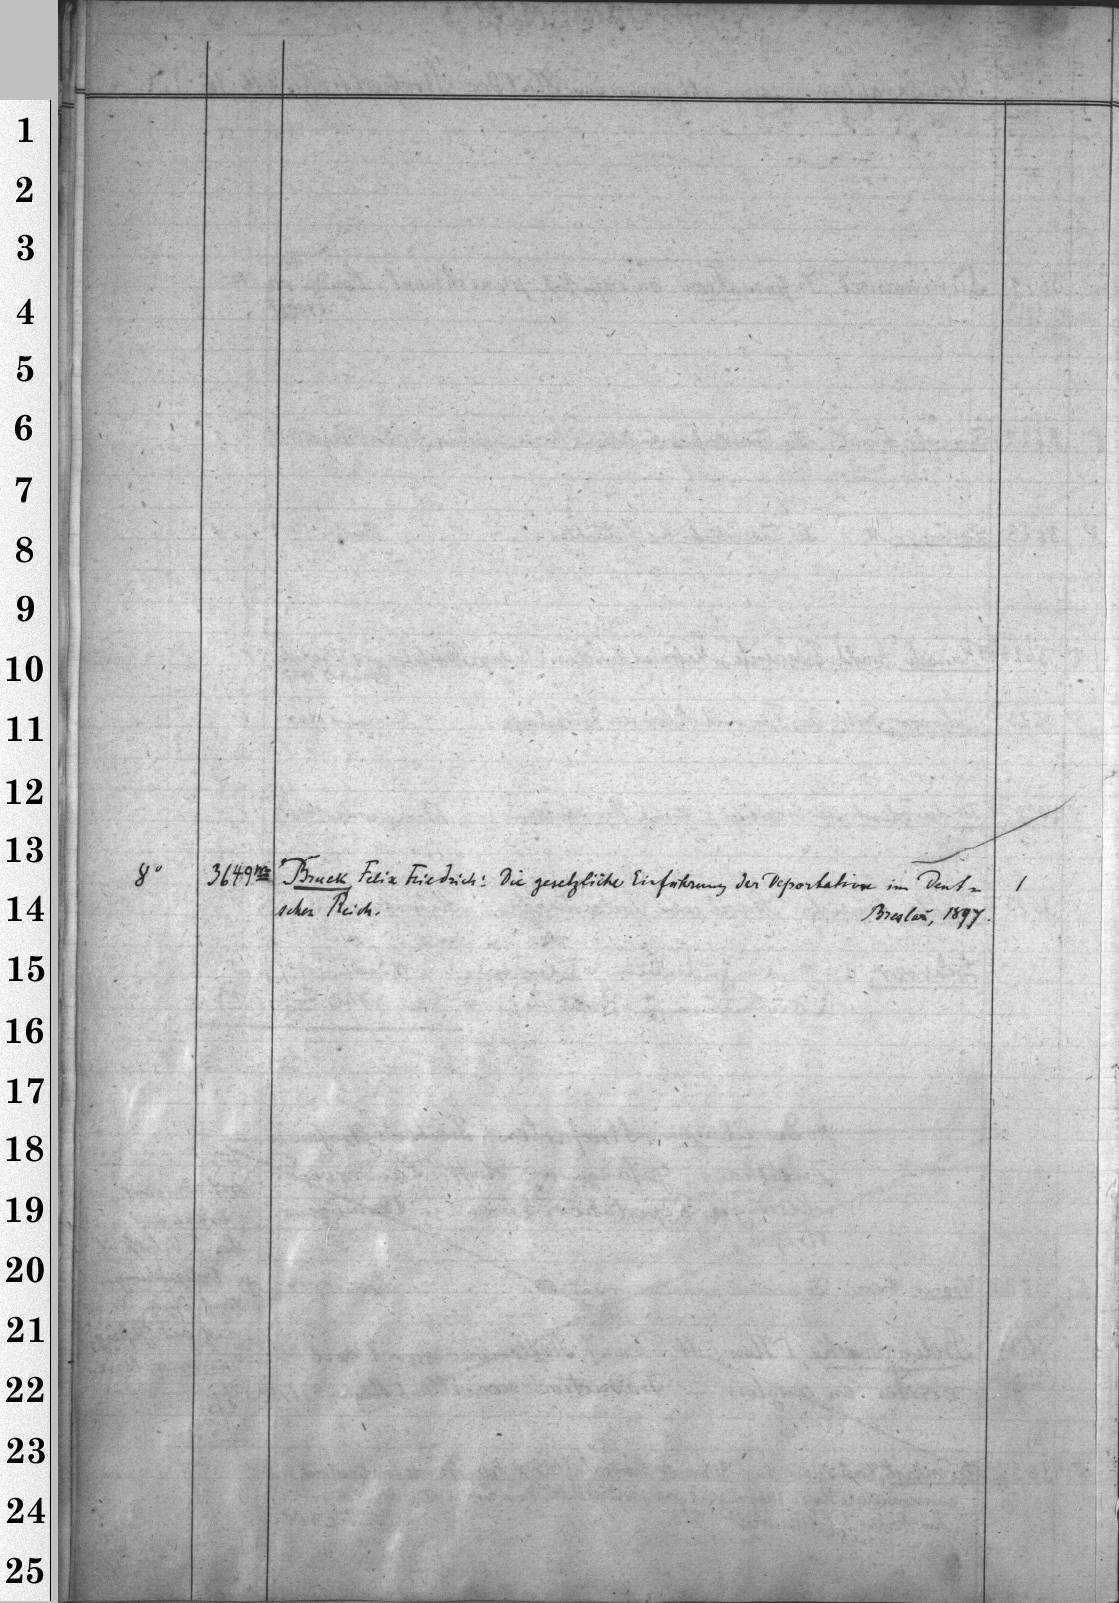 1
2
3
4
5
6
7
8
9
10
11
12
13
8° 3649 Bruck Felix Friedrich: Die gesetzliche Einführung der Deportation im Deut- 1
14
schen Reich. Breslau, 1897.
15
16
17
18
19
20
21
22
23
24
25